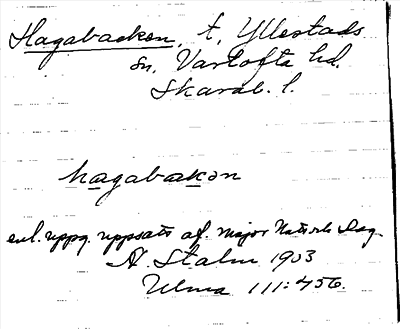 Hagabacken, t, Yllestads
sn, Vartofta hd.
Skarab. l.
hagabakən
enl. uppg. uppsats af. Major
A. Stalin 1903
Ulma 111:456.